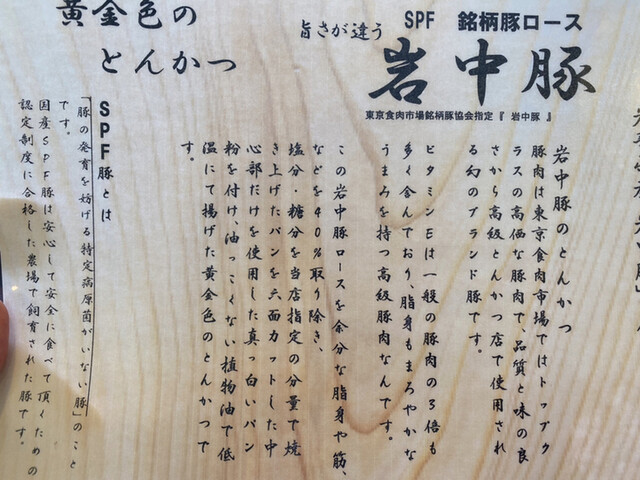 旨さが違う
SPF 銘柄豚ロース
岩中豚
東京食肉市場銘柄豚協会指定『 岩中豚 』
岩中豚のとんかつ
豚肉は東京食肉市場ではトップク
ラスの高価な豚肉で、品質と味の良
さから高級とんかつ店で使用され
る幻のブランド豚です。
ビタミンEは一般の豚肉の3倍も
多く含んでおり、脂身もまろやかな
うまみを持つ高級豚肉なんです。
この岩中豚ロースを余分な脂身や筋、
などを40%取り除き、
塩分・糖分を当店指定の分量で焼
き上げたパンを六面カットした中
心部だけを使用した真っ白いパン
粉を付け、油っこくない植物油で低
温にて揚げた黄金色のとんかつで
す。
黄金色の
とんかつ
SPF豚とは
「豚の発育を妨げる特定病原菌がいない豚」のこと
です。
国産SPF豚は安心して安全に食べて頂くための
認定制度に合格した農場で飼育された豚です。